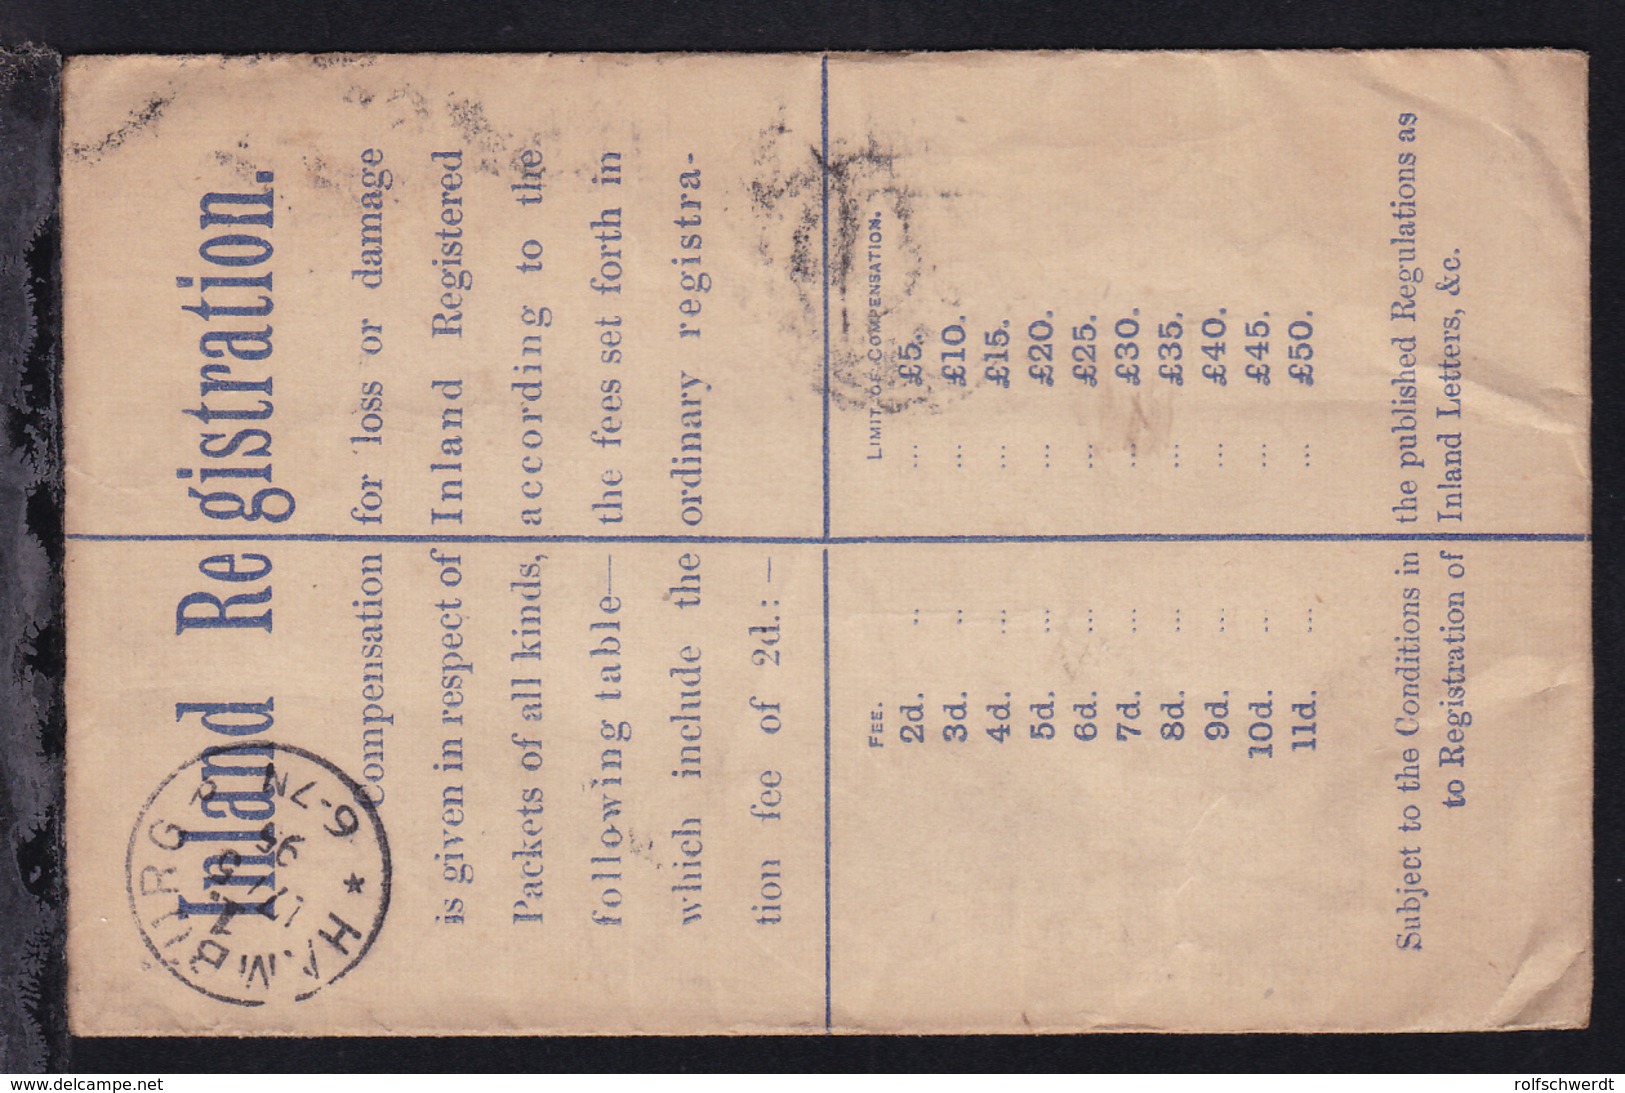 Inland Registration.
Compensation for loss or damage
is given in respect of Inland Registered
Packets of all kinds, according to the
following table— the fees set forth in
which include the ordinary registra-
tion fee of 2d.:—
FEE. LIMIT OF COMPENSATION.
2d. ... ... £5.
3d. ... ... £10.
4d. ... ... £15.
5d. ... ... £20.
6d. ... ... £25.
7d. ... ... £30.
8d. ... ... £35.
9d. ... ... £40.
10d. ... ... £45.
11d. ... ... £50.
Subject to the Conditions in the published Regulations as
to Registration of Inland Letters, &c.
* HAMBURG
6-7N
www.delcampe.net
rolfschwerdt